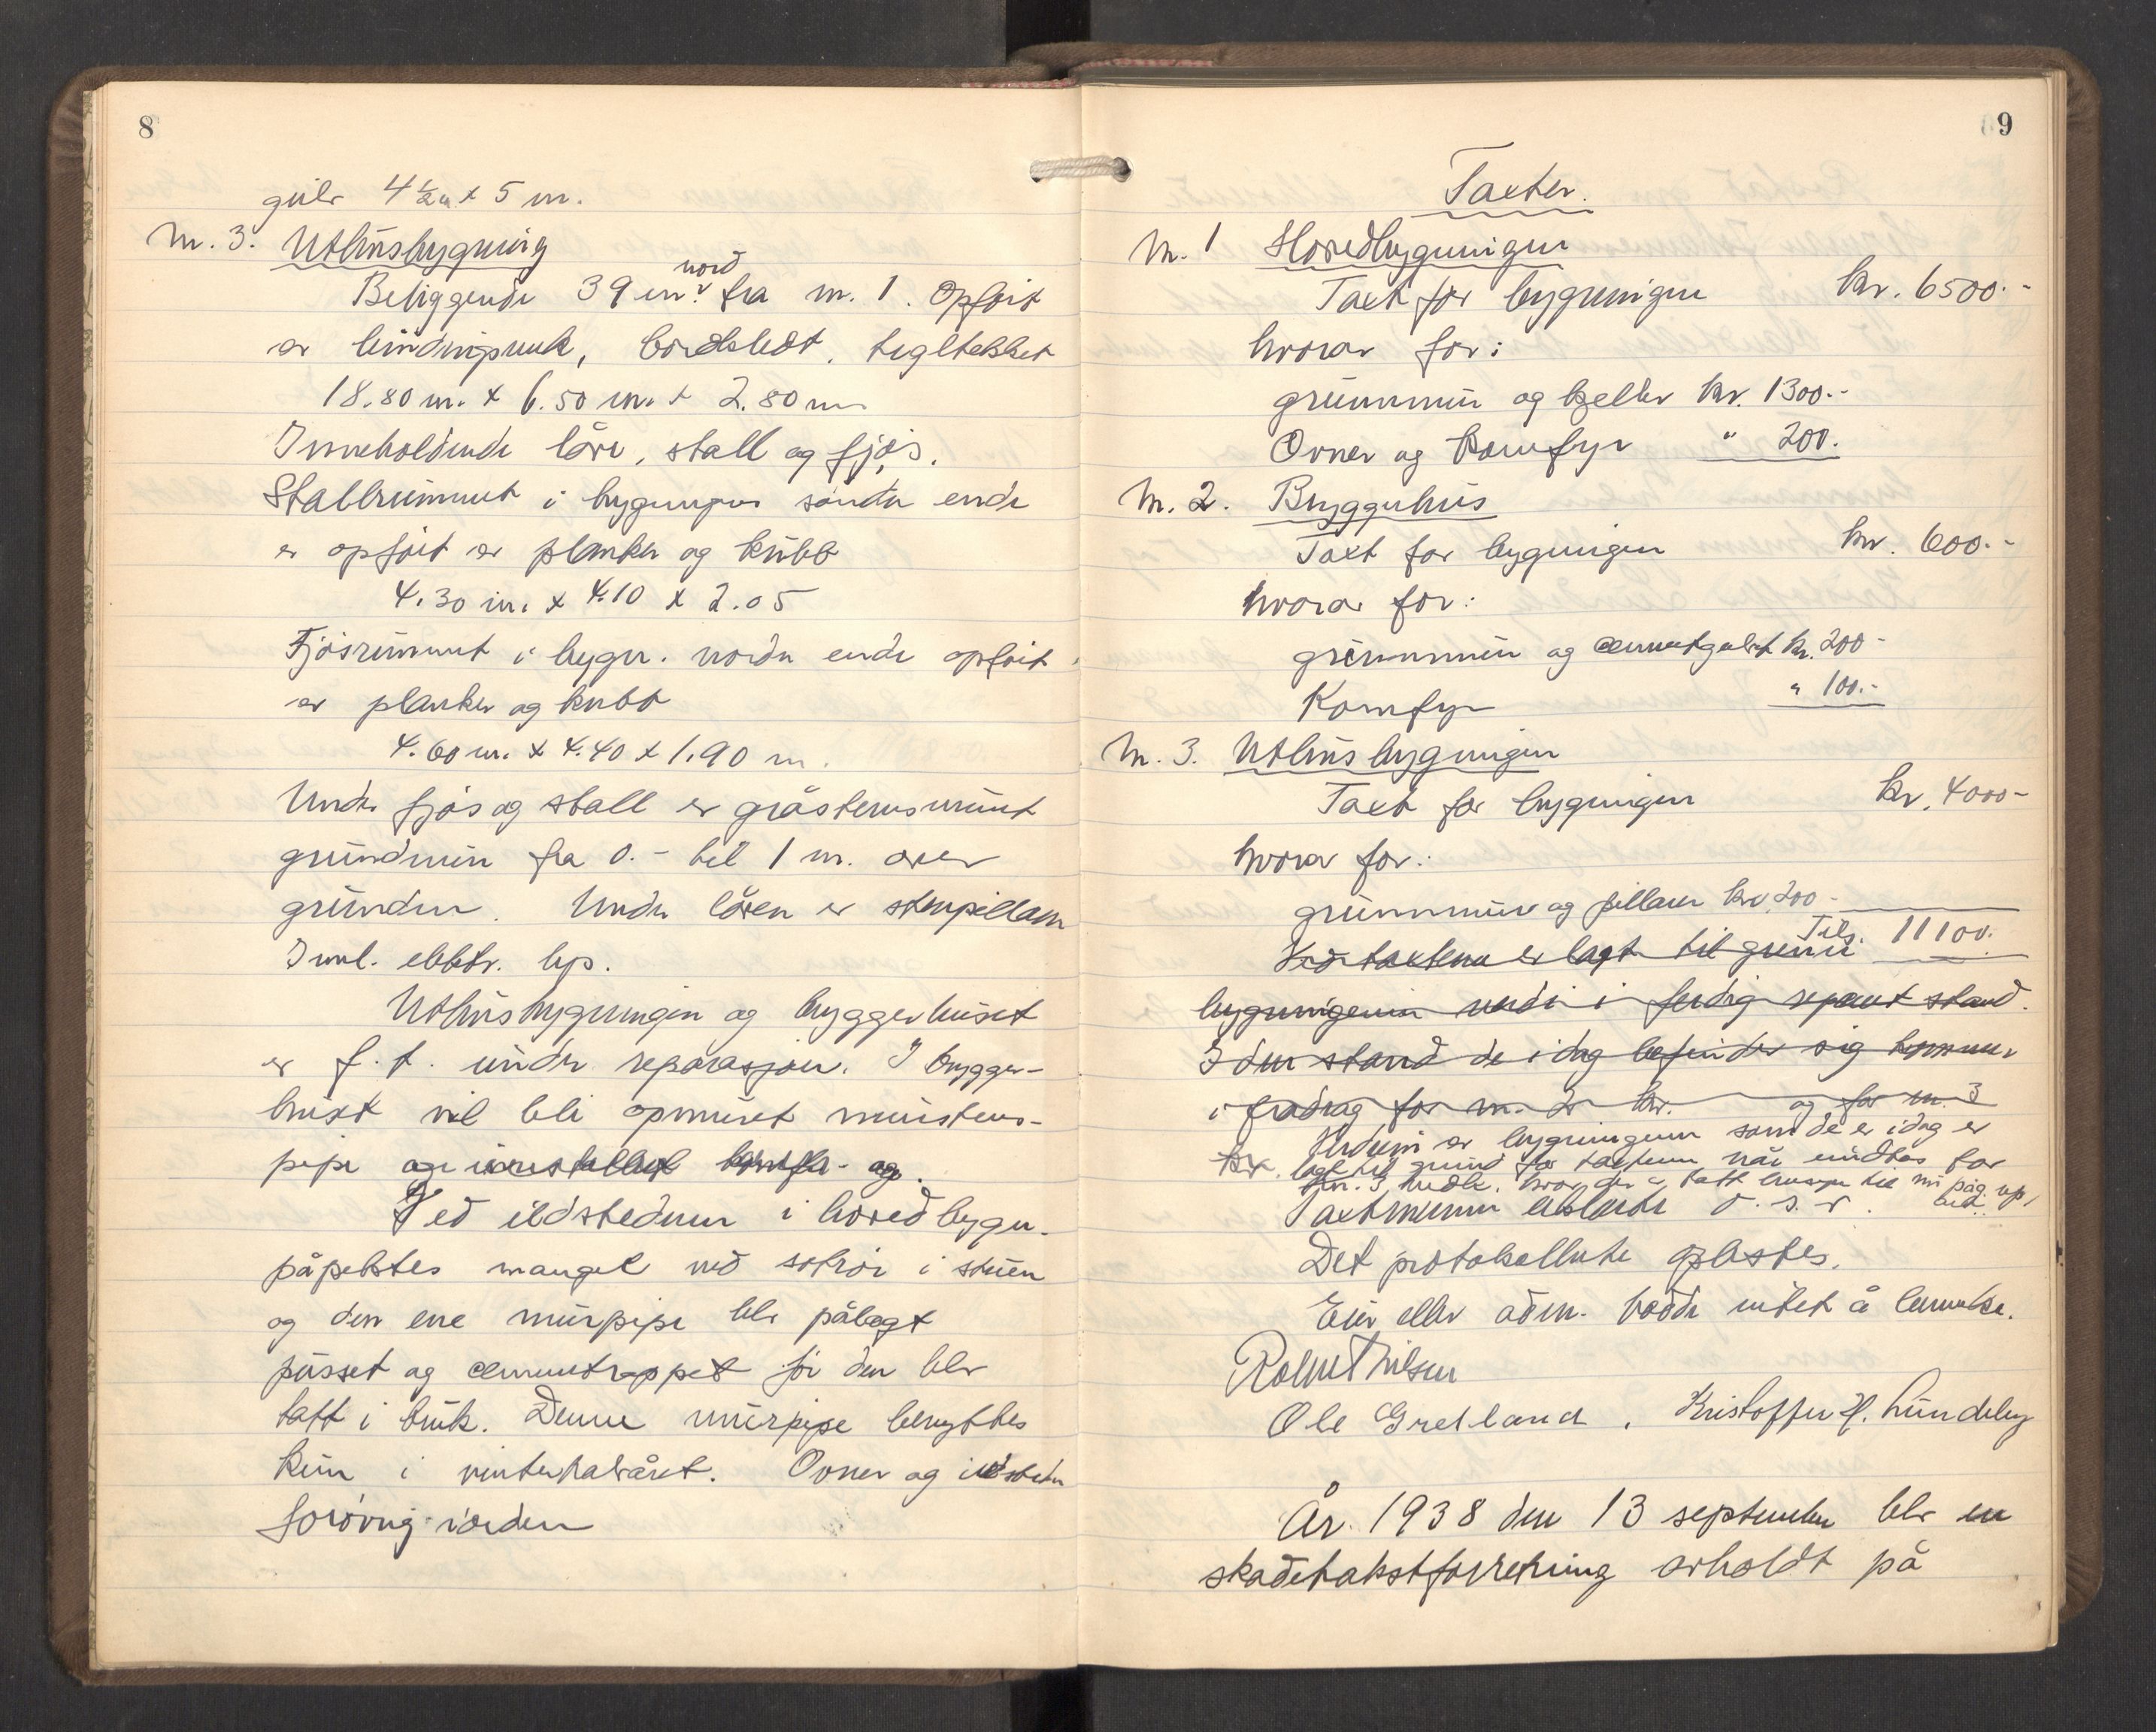 8
gulv 4½ x 5 m.
M. 3. Uthusbygning
nord
Beliggende 39 m. fra m. 1. Opført
av bindingsverk, bordkledt, tegltekket
18.80 m. x 6.50 m. x 2.80 m
Inneholdende låve, stall og fjøs.
Stallrummet i bygningens søndre ende
er opført av planker og kubb
4.30 m. x 4.10 x 2.05
Fjøsrummet i bygn. nordre ende opført
av planker og kubb
4.60 m. x 4.40 x 1.90 m.
Under fjøs og stall er gråstensmurt
grundmur fra 0.- til 1 m. over
grunden. Under låven er stenpillarer
Innl. elektr. lys.
Uthusbygningen og bryggerhuset
er f. t. under reparasjon. I brygger-
huset vil bli opmuret murstens-
pipe og innstallert komfyr og.
Ved ildstedene i hovedbygn.
påpektes mangel ved sotrør i stuen
og den ene murpipe blev pålagt
pusset og cementrappet før den blev
tatt i bruk. Denne murpipe benyttes
kun i vinterhalvåret. Ovner og ildsteder
forøvrig i orden
9
Taxter.
M. 1 Hovedbygningen
Taxt for bygningen kr. 6500.-
hvorav for:
grunnmur og kjeller kr. 1300.-
Ovner og komfyr " 200.
M. 2. Bryggerhus
Taxt for bygningen kr. 600.-
hvorav for:
grunnmur og cementgulvet kr. 200-
Komfyr " 100.-
M. 3. Uthusbygningen
Taxt for bygningen kr. 4000-
hvorav for:
grunnmur og pillarer kr. 200-
Tils. 11100.
Ved taxtene er lagt til grunn
bygningenes verdi i ferdig reparert stand.
I den stand de idag befinder sig kommer
i fradrag for m. 2 kr. og for m. 3
kr. Verdien av bygningene som de er idag er
lagt til grund for taxtene når undtas for
m. 3 vedk. hvor der er tatt hensyn til nu påg. rep.
arb.
Taxtmennene erklærte o. s. v.
Det protokollerte oplestes.
Eier eller adm. hadde intet å bemerke.
Robert Nilsen
Ole Gretland. Kristoffer H. Lundeby
År 1938 den 13 september blev en
skadetakstforretning avholdt på